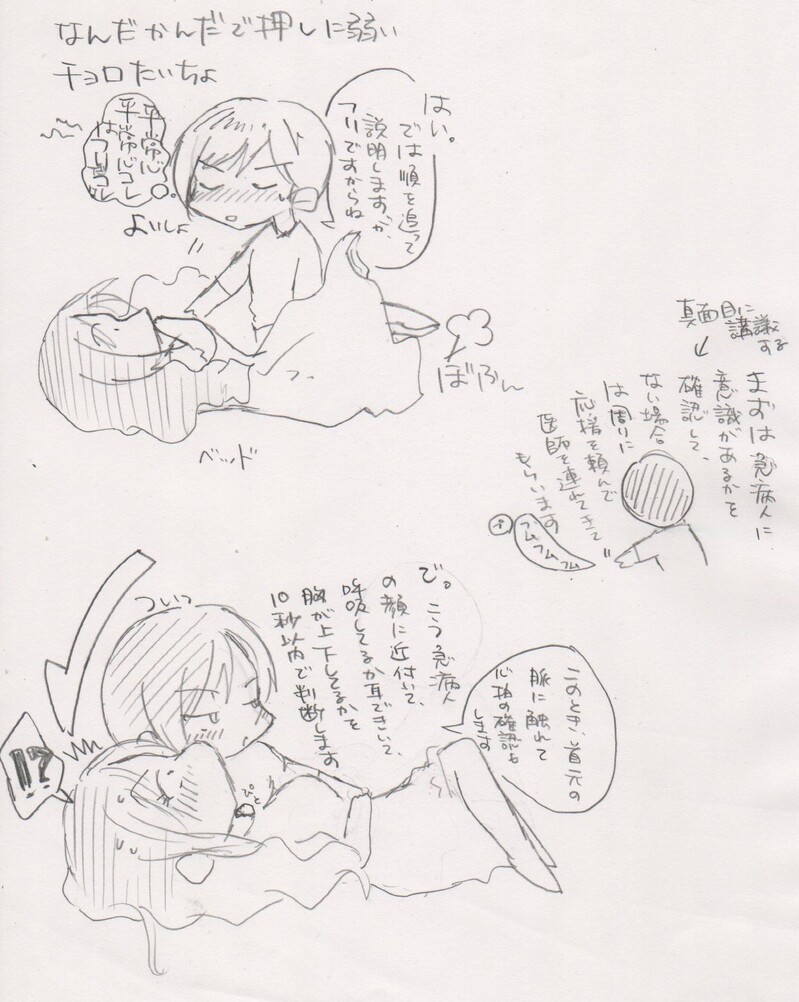 なんだかんだで押しに弱い
チョロたいちょ
はい。
では順を追って
説明しますが、
フリですからね
平常心コレ
平常心コレ
は
よいしょ
ぼふん
ベッド
真面目に
講議
する
まずは急病人に
意識があるかを
確認して、
ない場合
は周りに
応援を頼んで
医師を連れてきて
もらいます
フムフムフム
で。こう急病人
の顔に近付いて、
呼吸してるか耳できいて、
胸が上下してるかを
10秒以内で判断します
このとき、首元の
脈に触れて
心拍の確認も
します
ついっ
!?
ぴと